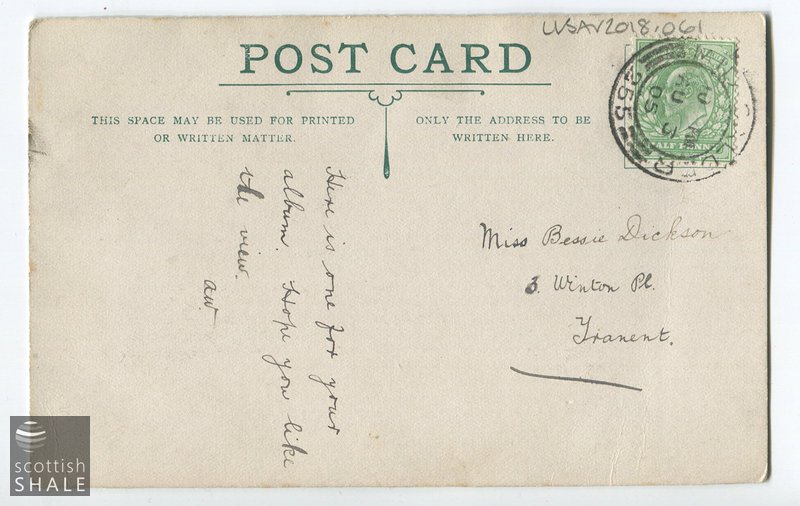 LVSAV2018.061
POST CARD
THIS SPACE MAY BE USED FOR PRINTED
OR WRITTEN MATTER.
ONLY THE ADDRESS TO BE
WRITTEN HERE.
HALF PENNY
255
05
Here is one for your
album. Hope you like
the view.
aw.
Miss Bessie Dickson
3. Winton Pl.
Tranent.
scottish
SHALE